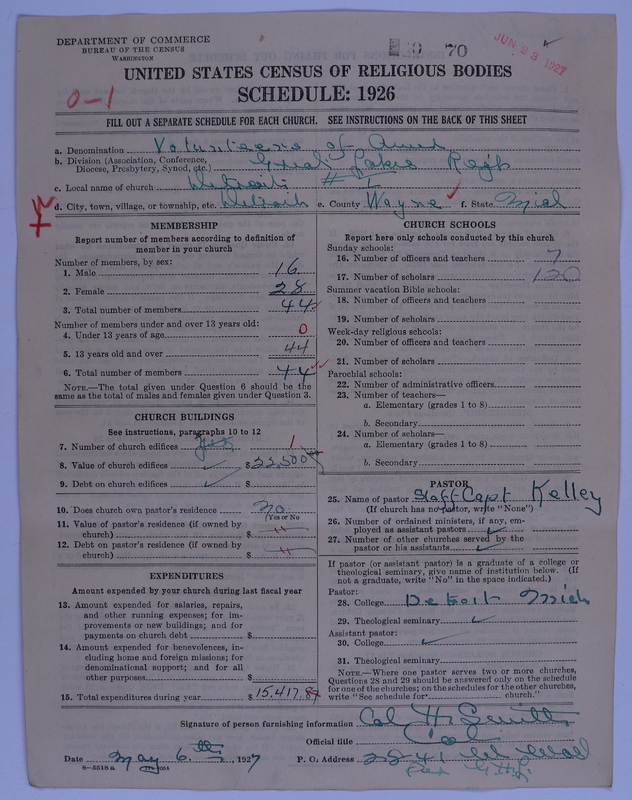 DEPARTMENT OF COMMERCE
BUREAU OF THE CENSUS
WASHINGTON
70
JUN 23 1927
UNITED STATES CENSUS OF RELIGIOUS BODIES
SCHEDULE: 1926
0-1
FILL OUT A SEPARATE SCHEDULE FOR EACH CHURCH. SEE INSTRUCTIONS ON THE BACK OF THIS SHEET
a. Denomination Volunteers of Amer
b. Division (Association, Conference, Diocese, Presbytery, Synod, etc.) Great Lakes
c. Local name of church Detroit # 1
d. City, town, village, or township, etc. Detroit e. County Wayne f. State Mich
MEMBERSHIP
Report number of members according to definition of
member in your church
Number of members, by sex:
1. Male 16
2. Female 28
3. Total number of members 44
Number of members under and over 13 years old:
4. Under 13 years of age 0
5. 13 years old and over 44
6. Total number of members 44
NOTE.—The total given under Question 6 should be the
same as the total of males and females given under Question 3.
CHURCH BUILDINGS
See instructions, paragraphs 10 to 12
7. Number of church edifices 1
8. Value of church edifices $ 22,500
9. Debt on church edifices $
10. Does church own pastor's residence no
(Yes or No
11. Value of pastor's residence (if owned by
church) $ "
12. Debt on pastor's residence (if owned by
church) $ "
EXPENDITURES
Amount expended by your church during last fiscal year
13. Amount expended for salaries, repairs,
and other running expenses; for im-
provements or new buildings; and for
payments on church debt $
14. Amount expended for benevolences, in-
cluding home and foreign missions; for
denominational support; and for all
other purposes $
15. Total expenditures during year $ 15,417.87
CHURCH SCHOOLS
Report here only schools conducted by this church
Sunday schools:
16. Number of officers and teachers 7
17. Number of scholars 120
Summer vacation Bible schools:
18. Number of officers and teachers
19. Number of scholars
Week-day religious schools:
20. Number of officers and teachers
21. Number of scholars
Parochial schools:
22. Number of administrative officers
23. Number of teachers—
a. Elementary (grades 1 to 8)
b. Secondary
24. Number of scholars—
a. Elementary (grades 1 to 8)
b. Secondary
PASTOR
25. Name of pastor Staff-Capt Kelley
(If church has no pastor, write "None")
26. Number of ordained ministers, if any, em-
ployed as assistant pastors
27. Number of other churches served by the
pastor or his assistants
If pastor (or assistant pastor) is a graduate of a college or
theological seminary, give name of institution below. (If
not a graduate, write "No" in the space indicated.)
Pastor:
28. College Detroit Mich
29. Theological seminary
Assistant pastor:
30. College
31. Theological seminary
NOTE.—Where one pastor serves two or more churches,
Questions 28 and 29 should be answered only on the schedule
for one of the churches; on the schedules for the other churches,
write "See schedule for church."
Signature of person furnishing information Col
Official title Col
Date May 6th 1927 P. O. Address
8-5518 a